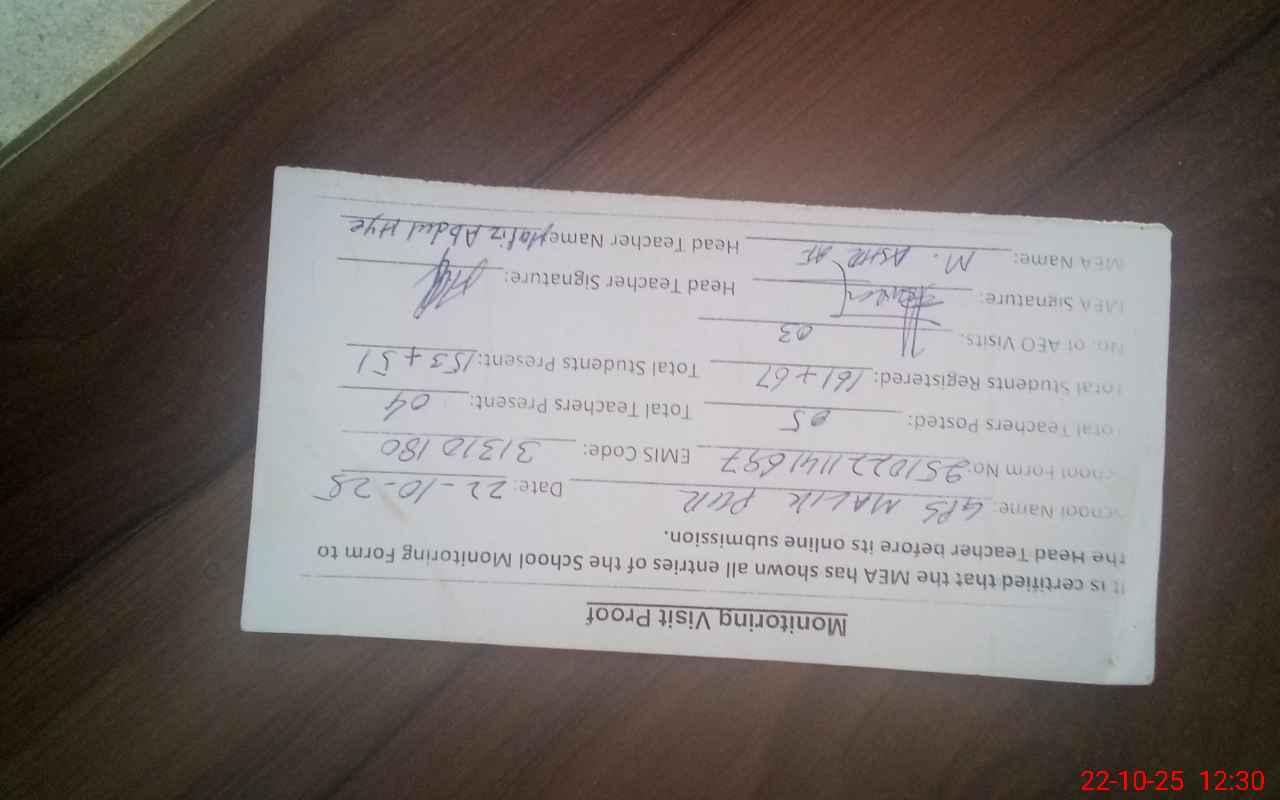 Monitoring Visit Proof
It is certified that the MEA has shown all entries of the School Monitoring Form to
the Head Teacher before its online submission.
School Name: GPS MALIK PUR Date: 22-10-25
School Form No: 2510221141697 EMIS Code: 31310180
Total Teachers Posted: 05 Total Teachers Present: 04
Total Students Registered: 161+67 Total Students Present: 153+51
No. of AEO Visits: 03
MEA Signature: Head Teacher Signature:
MEA Name: M. ASHRAF Head Teacher Name: Hafiz Abdul Hye
22-10-25 12:30